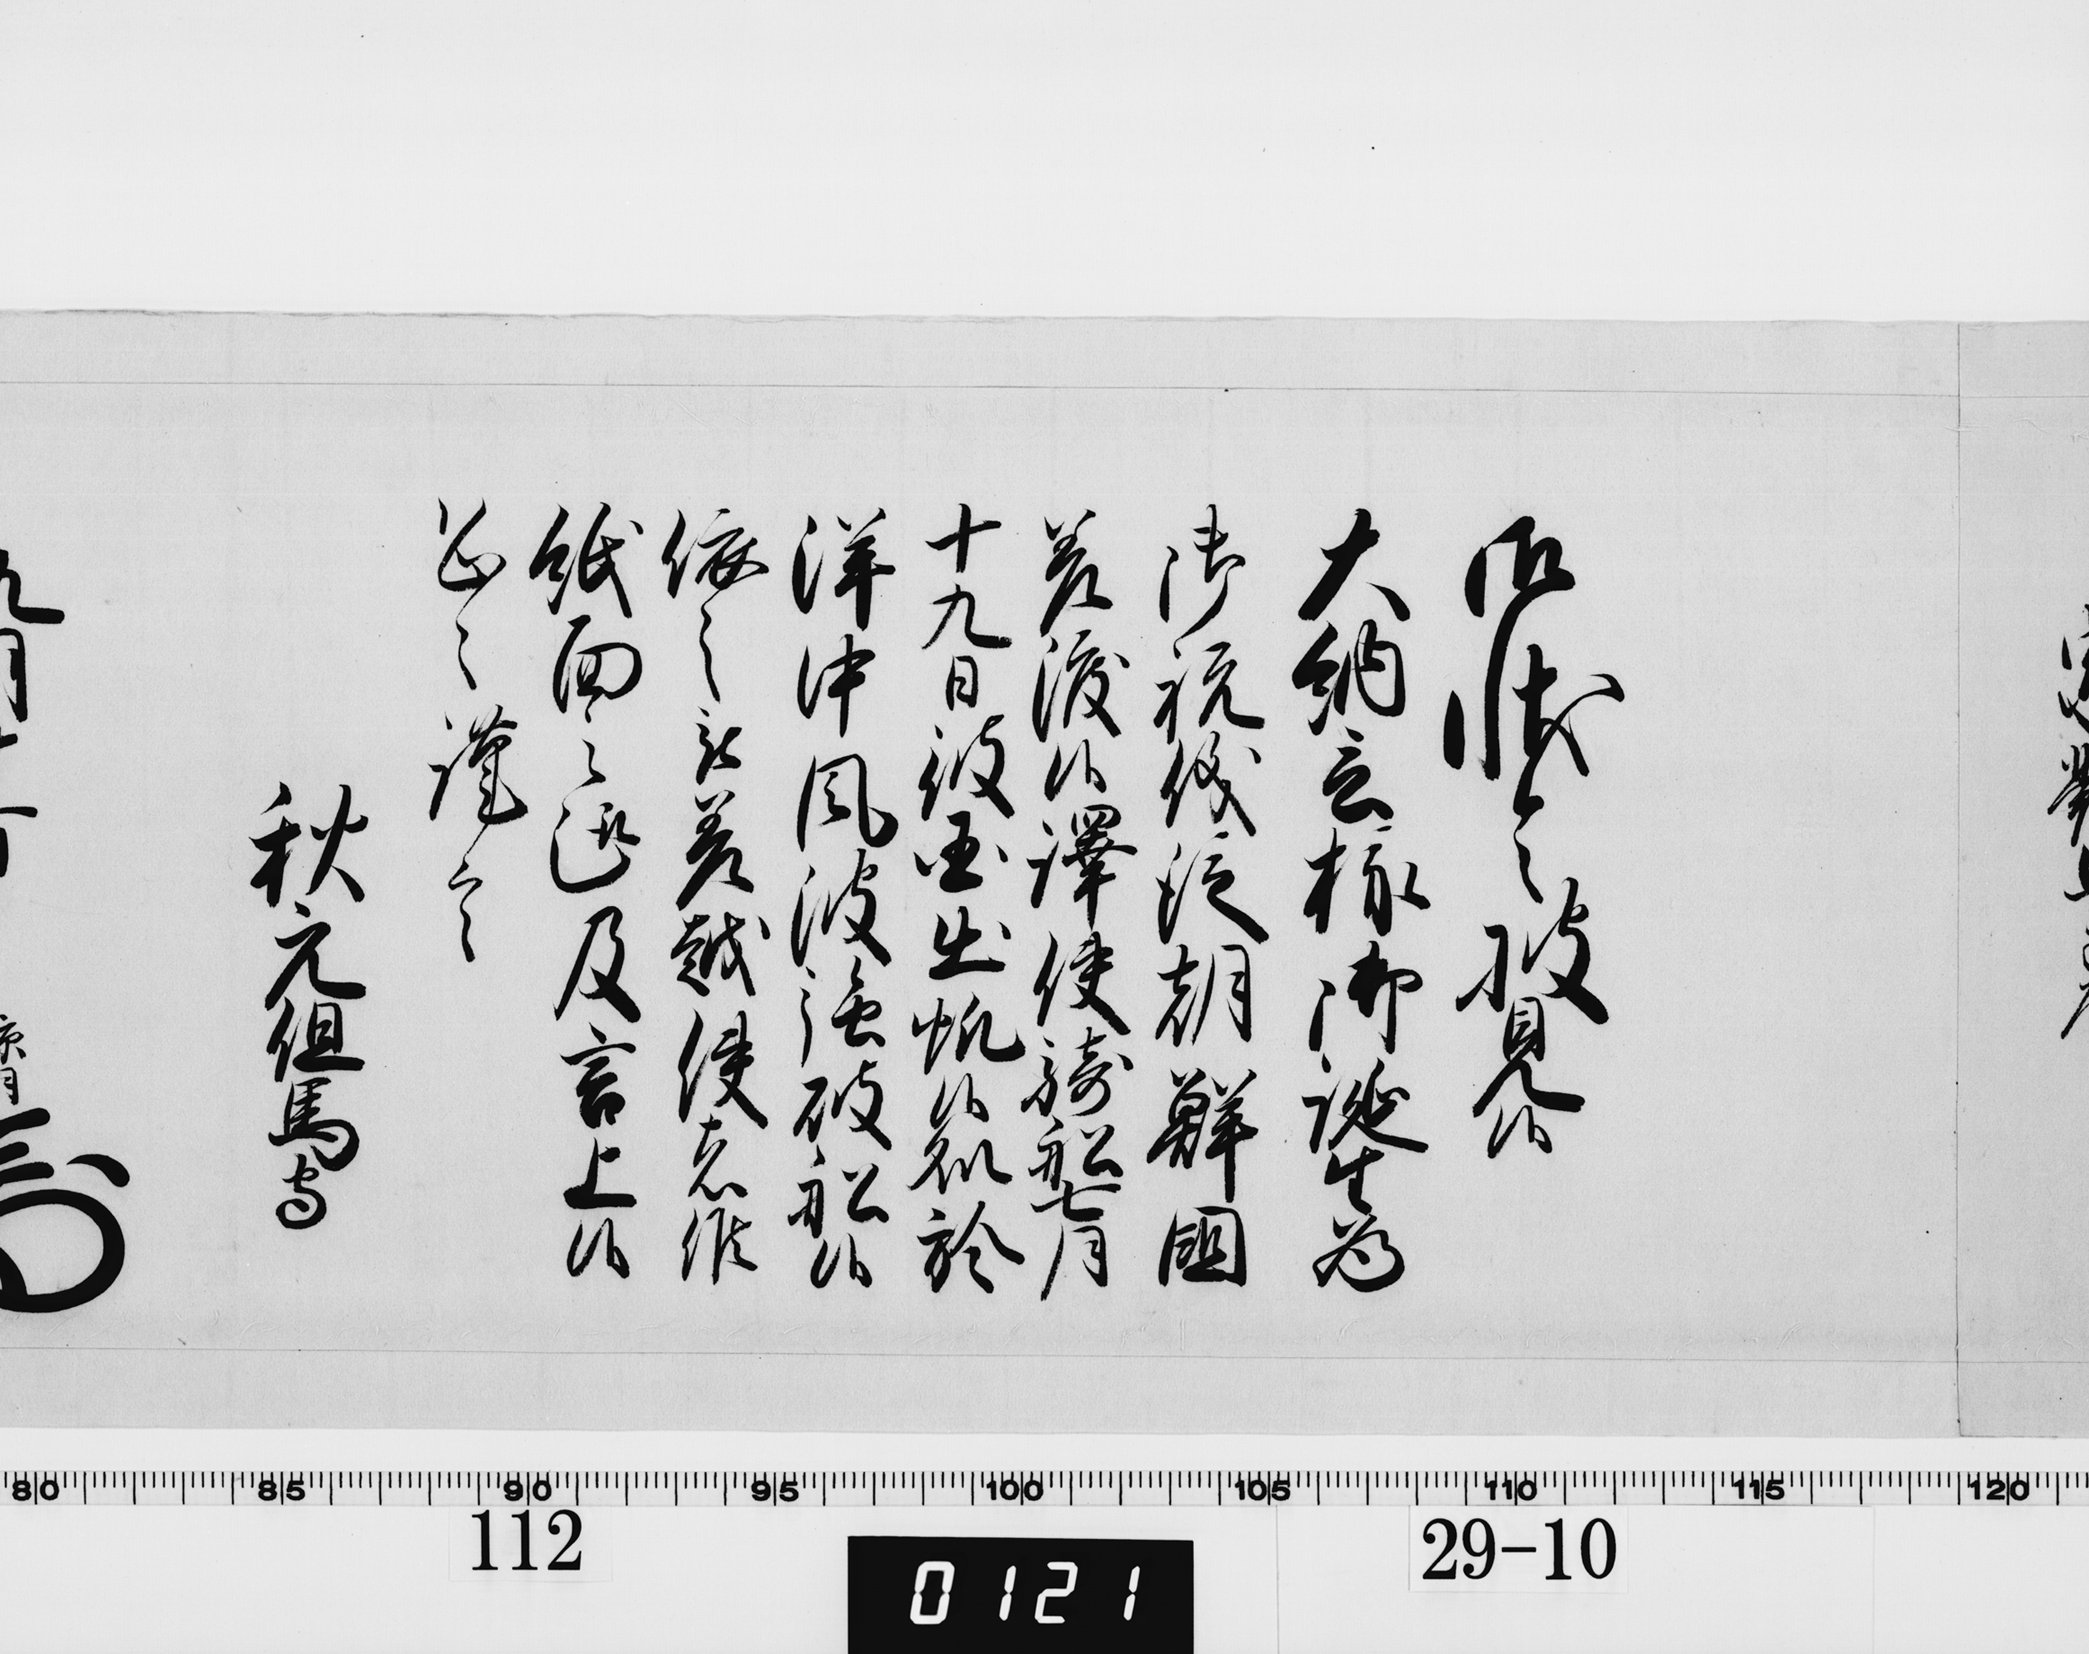 御状令披見候
大納言様御誕生為
御祝儀従朝鮮国
差渡候譯使騎船七月
十九日彼国出帆候処於
洋中風波強破船候
依之被差越使者
紙面之趣及言上候
恐々謹言
秋元但馬守
九月十
凉朝
80 85 90 95 100 105 110 115 120
112
29-10
0121